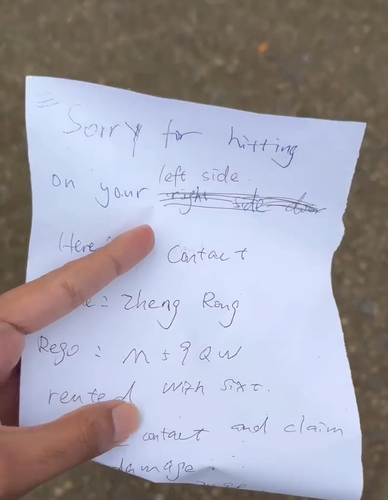 Sorry for hitting
on your left side
right side door
Here
Contact
= Zheng Rong
Rego = M59QW
rented with sixt.
contact and claim
damage.